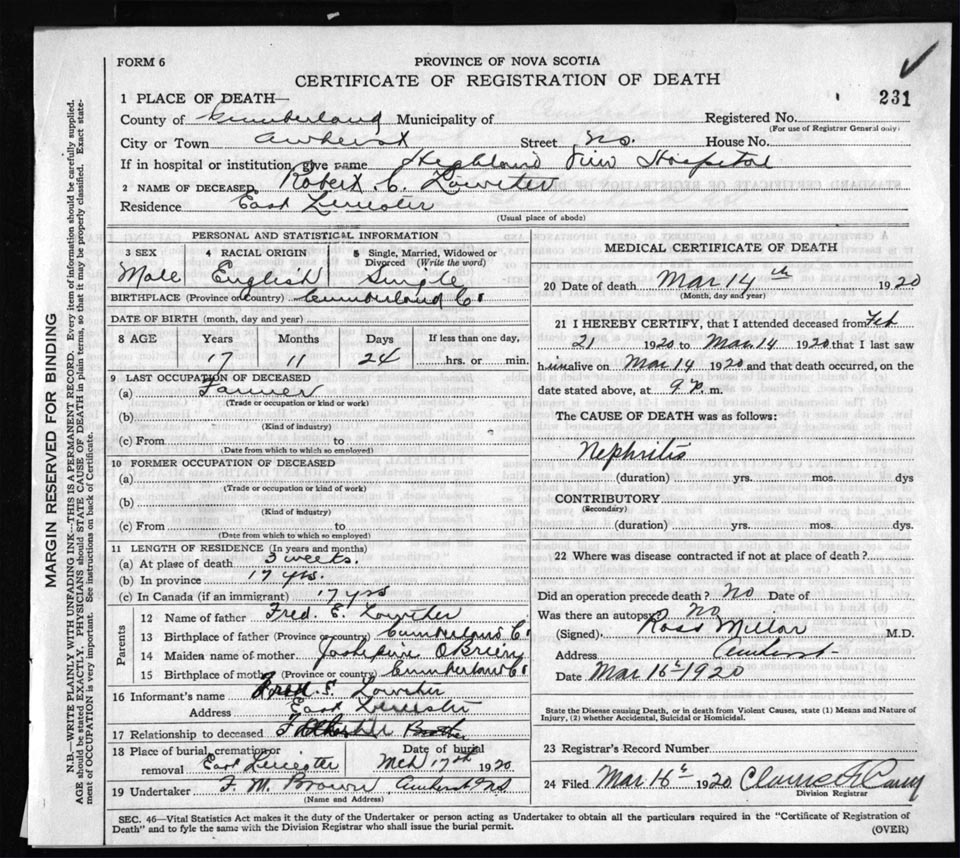 FORM 6
PROVINCE OF NOVA SCOTIA
CERTIFICATE OF REGISTRATION OF DEATH
231
1 PLACE OF DEATH—
County of Cumberland Municipality of Registered No.
(For use of Registrar General only)
City or Town Amherst Street N.S. House No.
If in hospital or institution, give name Highland View Hospital
2 NAME OF DECEASED Robert C. Lowther
Residence East Leicester
(Usual place of abode)
PERSONAL AND STATISTICAL INFORMATION
3 SEX 4 RACIAL ORIGIN 5 Single, Married, Widowed or Divorced (Write the word)
Male English Single
BIRTHPLACE (Province or country) Cumberland Co
DATE OF BIRTH (month, day and year)
8 AGE Years Months Days If less than one day,
17 11 24 hrs. or min.
9 LAST OCCUPATION OF DECEASED
(a) Farmer
(Trade or occupation or kind of work)
(b)
(Kind of industry)
(c) From to
(Date from which to which so employed)
10 FORMER OCCUPATION OF DECEASED
(a)
(Trade or occupation or kind of work)
(b)
(Kind of industry)
(c) From to
(Date from which to which so employed)
11 LENGTH OF RESIDENCE (In years and months)
(a) At place of death 3 weeks.
(b) In province 17 yrs.
(c) In Canada (if an immigrant) 17 yrs
Parents
12 Name of father Fred. E. Lowther
13 Birthplace of father (Province or country) Cumberland Co
14 Maiden name of mother Josephine O'Brien
15 Birthplace of mother (Province or country) Cumberland Co
16 Informant's name Lowther
Address East Leicester
17 Relationship to deceased Brother
18 Place of burial, cremation or removal East Leicester Date of burial Mch 17th 1920
19 Undertaker F. M. Brown Amherst NS
(Name and Address)
MEDICAL CERTIFICATE OF DEATH
20 Date of death Mar 14th 1920
(Month, day and year)
21 I HEREBY CERTIFY, that I attended deceased from Feb
21 1920 to Mar. 14 1920 that I last saw
him alive on Mar 14 1920 and that death occurred, on the
date stated above, at 9 P. m.
The CAUSE OF DEATH was as follows:
Nephritis
(duration) yrs. mos. dys
CONTRIBUTORY
(Secondary)
(duration) yrs. mos. dys.
22 Where was disease contracted if not at place of death?
Did an operation precede death? No Date of
Was there an autopsy? No
(Signed) Ross Millar M.D.
Address Amherst
Date Mar 16th 1920
State the Disease causing Death, or in death from Violent Causes, state (1) Means and Nature of
Injury, (2) whether Accidental, Suicidal or Homicidal.
23 Registrar's Record Number
24 Filed Mar 16th 1920
Division Registrar
SEC. 46—Vital Statistics Act makes it the duty of the Undertaker or person acting as Undertaker to obtain all the particulars required in the "Certificate of Registration of
Death" and to fyle the same with the Division Registrar who shall issue the burial permit.
(OVER)
MARGIN RESERVED FOR BINDING
N.B.—WRITE PLAINLY WITH UNFADING INK—THIS IS A PERMANENT RECORD. Every item of information should be carefully supplied.
AGE should be stated EXACTLY. PHYSICIANS should STATE CAUSE OF DEATH in plain terms, so that it may be properly classified. Exact statement of OCCUPATION is very important. See instructions on back of Certificate.